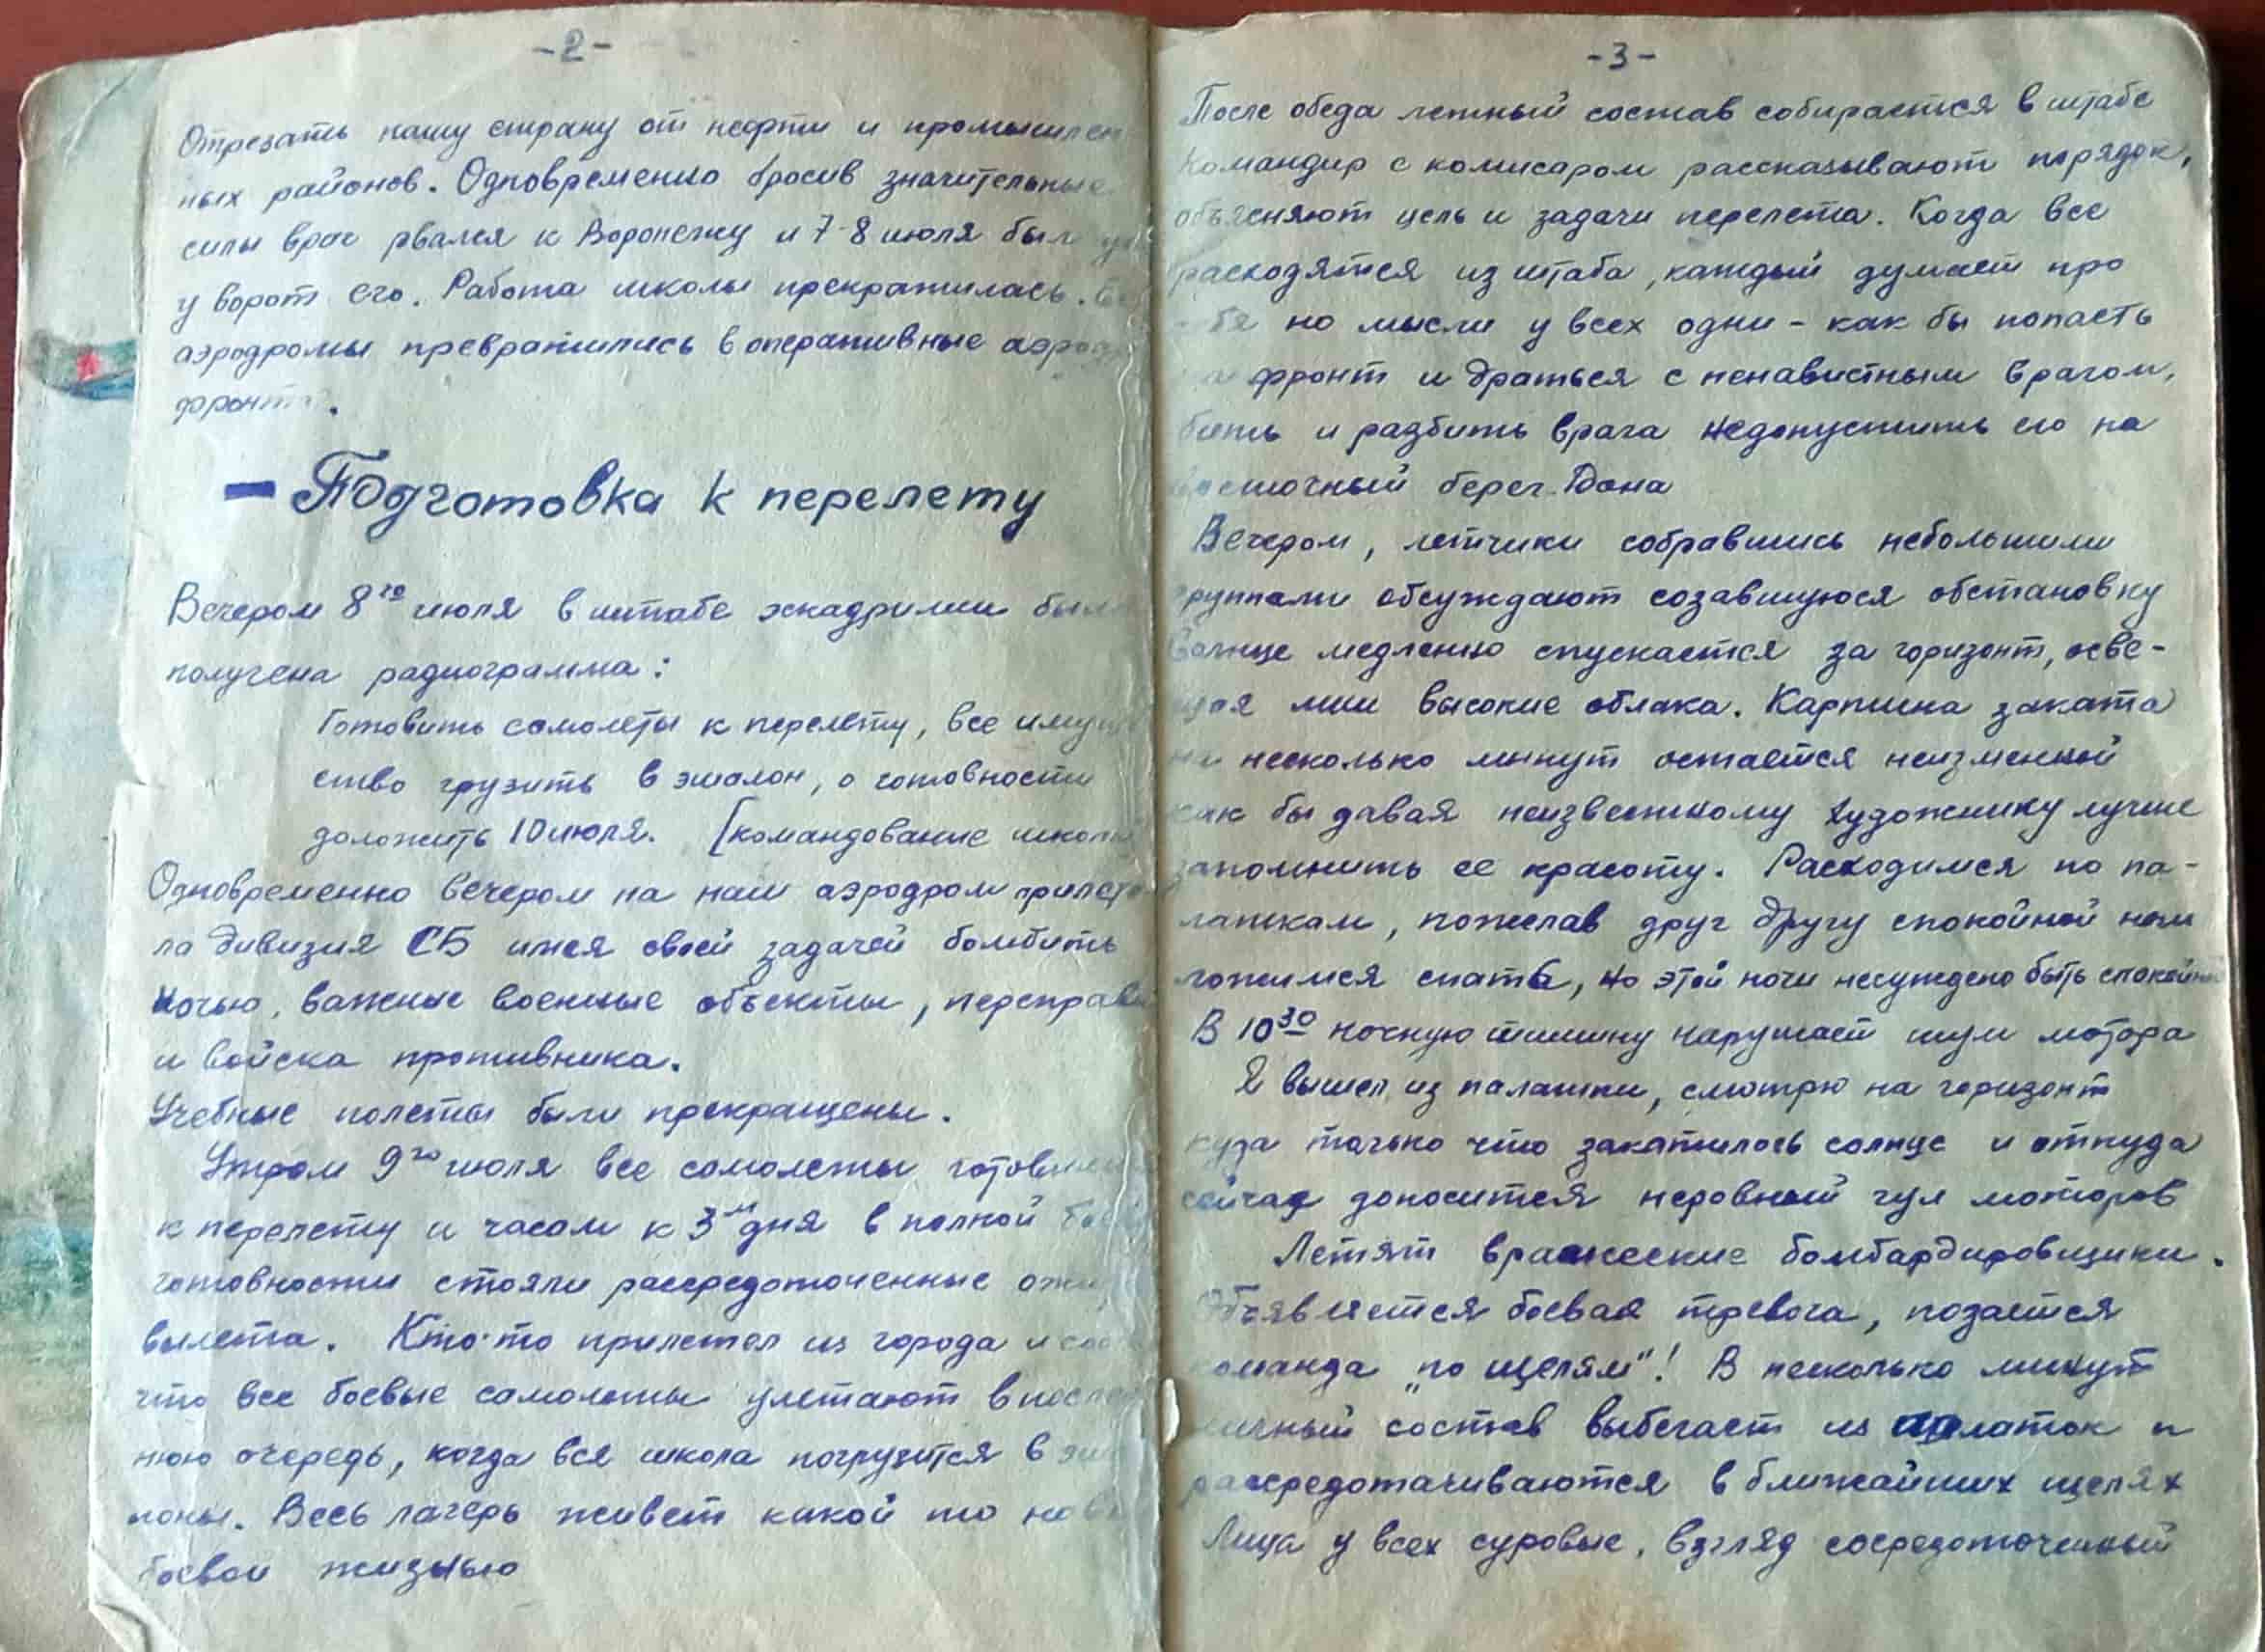 -2-
Отрезать нашу страну от нефти и промышлен
ных районов. Одновременно бросив значительные
силы враг рвался к Воронежу и 7-8 июля был
у ворот его. Работа школы прекратилась.
аэродромы превратились в оперативные аэрод
фронта.
- Подготовка к перелету
Вечером 8го июля в штабе эскадрилии была
получена радиограмма:
Готовить самолеты к перелету, все имуще
ство грузить в эшалон, о готовности
доложить 10 июля. [командование школы
Одновременно вечером на наш аэродром прилете
ла дивизия СБ имея своей задачей бомбить
ночью, важные военные объекты, переправы
и войска противника.
Учебные полеты были прекращены.
Утром 9го июля все самолеты готовились
к перелету и часом к 3м дня в полной боевой
готовности стояли рассредоточенные ожид
вылета. Кто-то прилетел из города и сооб
что все боевые самолеты улетают в послед
нюю очередь, когда вся школа погрузится в эша
лоны. Весь лагерь живет какой то новой
боевой жизнью
-3-
После обеда летный состав собирается в штабе
командир с комисаром рассказывают порядок,
объясняют цель и задачи перелета. Когда все
расходятся из штаба, каждый думает про
себя но мысли у всех одни - как бы попасть
на фронт и драться с ненавистным врагом,
бить и разбить врага недопустить его на
восточный берег Дона
Вечером, летчики собравшись небольшими
группами обсуждают созавшуюся обстановку
Солнце медленно спускается за горизонт, осве-
щая мии высокие облака. Картина заката
на несколько минут остается неизменной
как бы давая неизвестному художнику лучше
запомнить ее красоту. Расходимся по па-
латкам, пожелав друг другу спокойной ночи
ложимся спать, но этой ночи несуждено быть спокойной
В 10 30 ночную тишину нарушает шум мотора
Я вышел из палатки, смотрю на горизонт
куда только что закатилось солнце и откуда
сейчас доносится неровный гул моторов
Летят вражеские бомбардировщики.
Объявляется боевая тревога, подается
команда „по щелям"! В несколько минут
личный состав выбегает из палаток и
рассредотачиваются в ближайших щелях
Лица у всех суровые, взгляд сосредоточенный